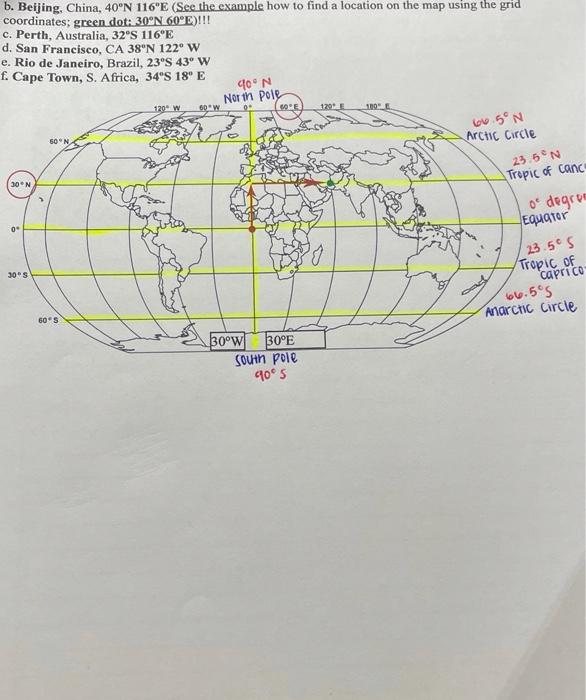 b. Beijing, China, 40°N 116°E (See the example how to find a location on the map using the grid
coordinates; green dot: 30°N 60°E)!!!
c. Perth, Australia, 32°S 116°E
d. San Francisco, CA 38°N 122° W
e. Rio de Janeiro, Brazil, 23°S 43° W
f. Cape Town, S. Africa, 34°S 18° E
90° N
North Pole
120° W 60° W 0° 60° E 120° E 180° E
66.5° N
Arctic Circle
60° N
23.5° N
Tropic of Canc
30° N
0° degre
Equator
0°
23.5° S
Tropic of
Caprico
30° S
66.5° S
Anarctic Circle
60° S
30°W 30°E
South Pole
90° S